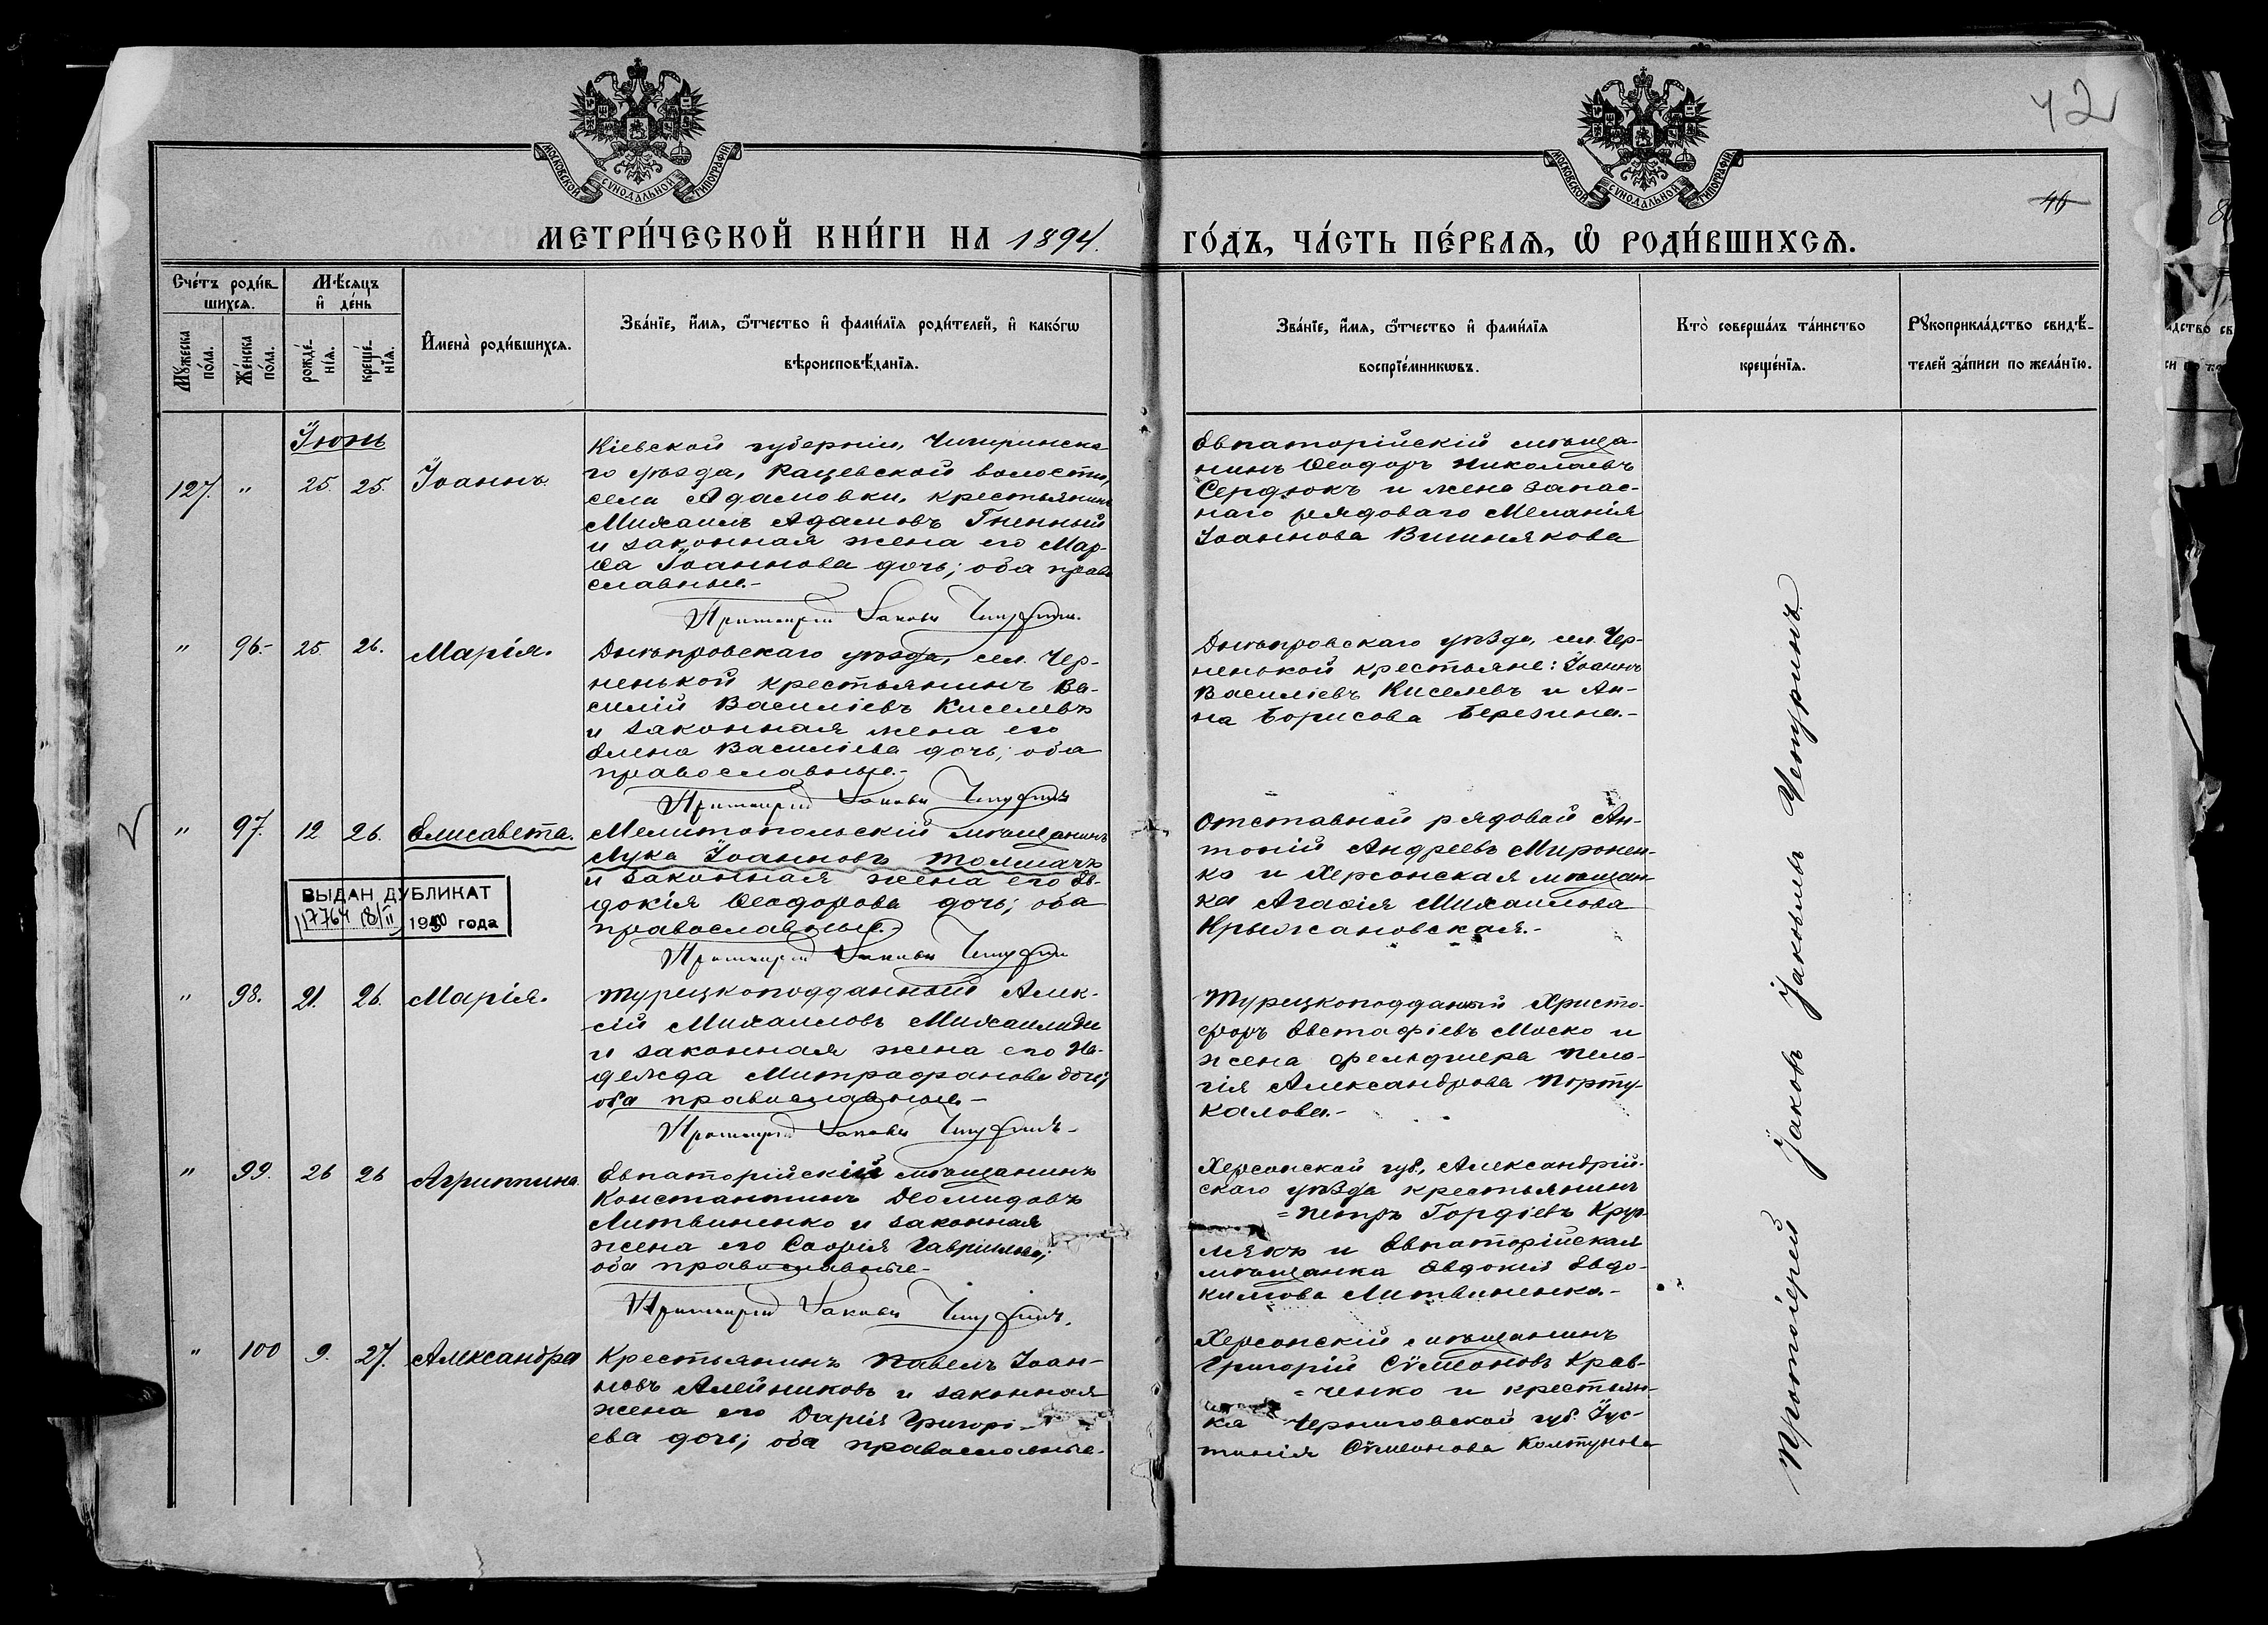 МОСКОВСКОЙ СУНОДАЛЬНОЙ ТИПОГРАФІИ
МОСКОВСКОЙ СУНОДАЛЬНОЙ ТИПОГРАФІИ
42
46
МЕТРИ́ЧЕСКОЙ КНИ́ГИ НА 1894.
ГО́ДЪ, ЧА́СТЬ ПЕ́РВАѦ, Ѡ҆ РОДИ́ВШИХСѦ.
Сче́тъ роди́в-
шихсѧ.
Мѣ́сѧцъ
и҆ де́нь
Мꙋ́жеска
по́ла.
Же́нска
по́ла.
рожде́-
нїѧ.
креще́-
нїѧ.
И҆мена̀ роди́вшихсѧ.
Зва́нїе, и҆́мѧ, ѻ҆́тчество и҆ фами́лїѧ роди́телей, и҆ како́гѡ
вѣроисповѣ́данїѧ.
Зва́нїе, и҆́мѧ, ѻ҆́тчество и҆ фами́лїѧ
воспрїе́мникѡвъ.
Кто̀ соверша́лъ та́инство
креще́нїѧ.
Рꙋкоприкла́дство свидѣ́-
телей за́писи по жела́нїю.
Іюнь
127. " 25. 25. Іоаннъ.
Кіевской губерніи, Чигиринска
го уѣзда, Рацевской волости,
села Адамовки, крестьянинъ
Михаилъ Адамовъ Гненный
и законная жена его Мар-
ѳа Іоаннова дочь; оба право
славные.-
Протоіерей Іаковъ Чепуринъ.
Евпаторійскій мѣща-
нинъ Ѳеодоръ Николаевъ
Сердюкъ и жена запас-
наго рядоваго Меланія
Іоаннова Вишнякова
" 96.- 25. 26. Марія.
Днѣпровскаго уѣзда, сел. Чер-
ненькой крестьянинъ Ва-
силій Василіевъ Киселевъ
и законная жена его
Елена Василіева дочь; оба
православные.-
Протоіерей Іаковъ Чепуринъ
Днѣпровскаго уѣзда, сел. Чер-
ненькой крестьяне: Іоаннъ
Василіевъ Киселевъ и Ан-
на Борисова Березина.-
" 97. 12. 26. Елисавета.
Мелитопольскій мѣщанинъ
Лука Іоанновъ Толмачъ
и законная жена его Ев-
докія Ѳеодорова дочь; оба
православные.-
Протоіерей Іаковъ Чепуринъ
ВЫДАН ДУБЛИКАТ
1950 года
Отставной рядовой Ан-
тоній Андреевъ Миронен-
ко и Херсонская мѣщан-
ка Агаѳія Михаилова
Крыжановская.-
" 98. 21. 26. Марія.
Турецкоподданный Алек-
сій Михаиловъ Михаилиди
и законная жена его На-
дежда Митрофанова дочь;
оба православные.-
Протоіерей Іаковъ Чепуринъ-
Турецкоподданный Христо-
форъ Евстафіевъ Моско и
жена фельдшера Пела-
гія Александрова Порту-
калова.-
" 99. 26 26 Агриппина.
Евпаторійскій мѣщанинъ
Константинъ Діомидовъ
Литвиненко и законная
жена его Софія Гавриилова;
оба православные-
Протоіерей Іаковъ Чепуринъ.
Херсонской губ., Александрій-
скаго уѣзда крестьянинъ
=Петръ Гордіевъ
и Евпаторійская
мѣщанка Евдокія Евдо-
кимова Литвиненко.-
" 100 9. 27. Александра
Крестьянинъ Павелъ Іоан-
новъ Алейниковъ и законная
жена его Дарія Григорі-
ева дочь; оба православные.
Херсонскій мѣщанинъ
Григорій Сѵмеоновъ Крав-
=ченко и крестьян-
ка Черниговской губ. Іус-
тинія Сѵмеонова Колтунова
Протоіерей Іаковъ Іаковлевъ Чепуринъ.